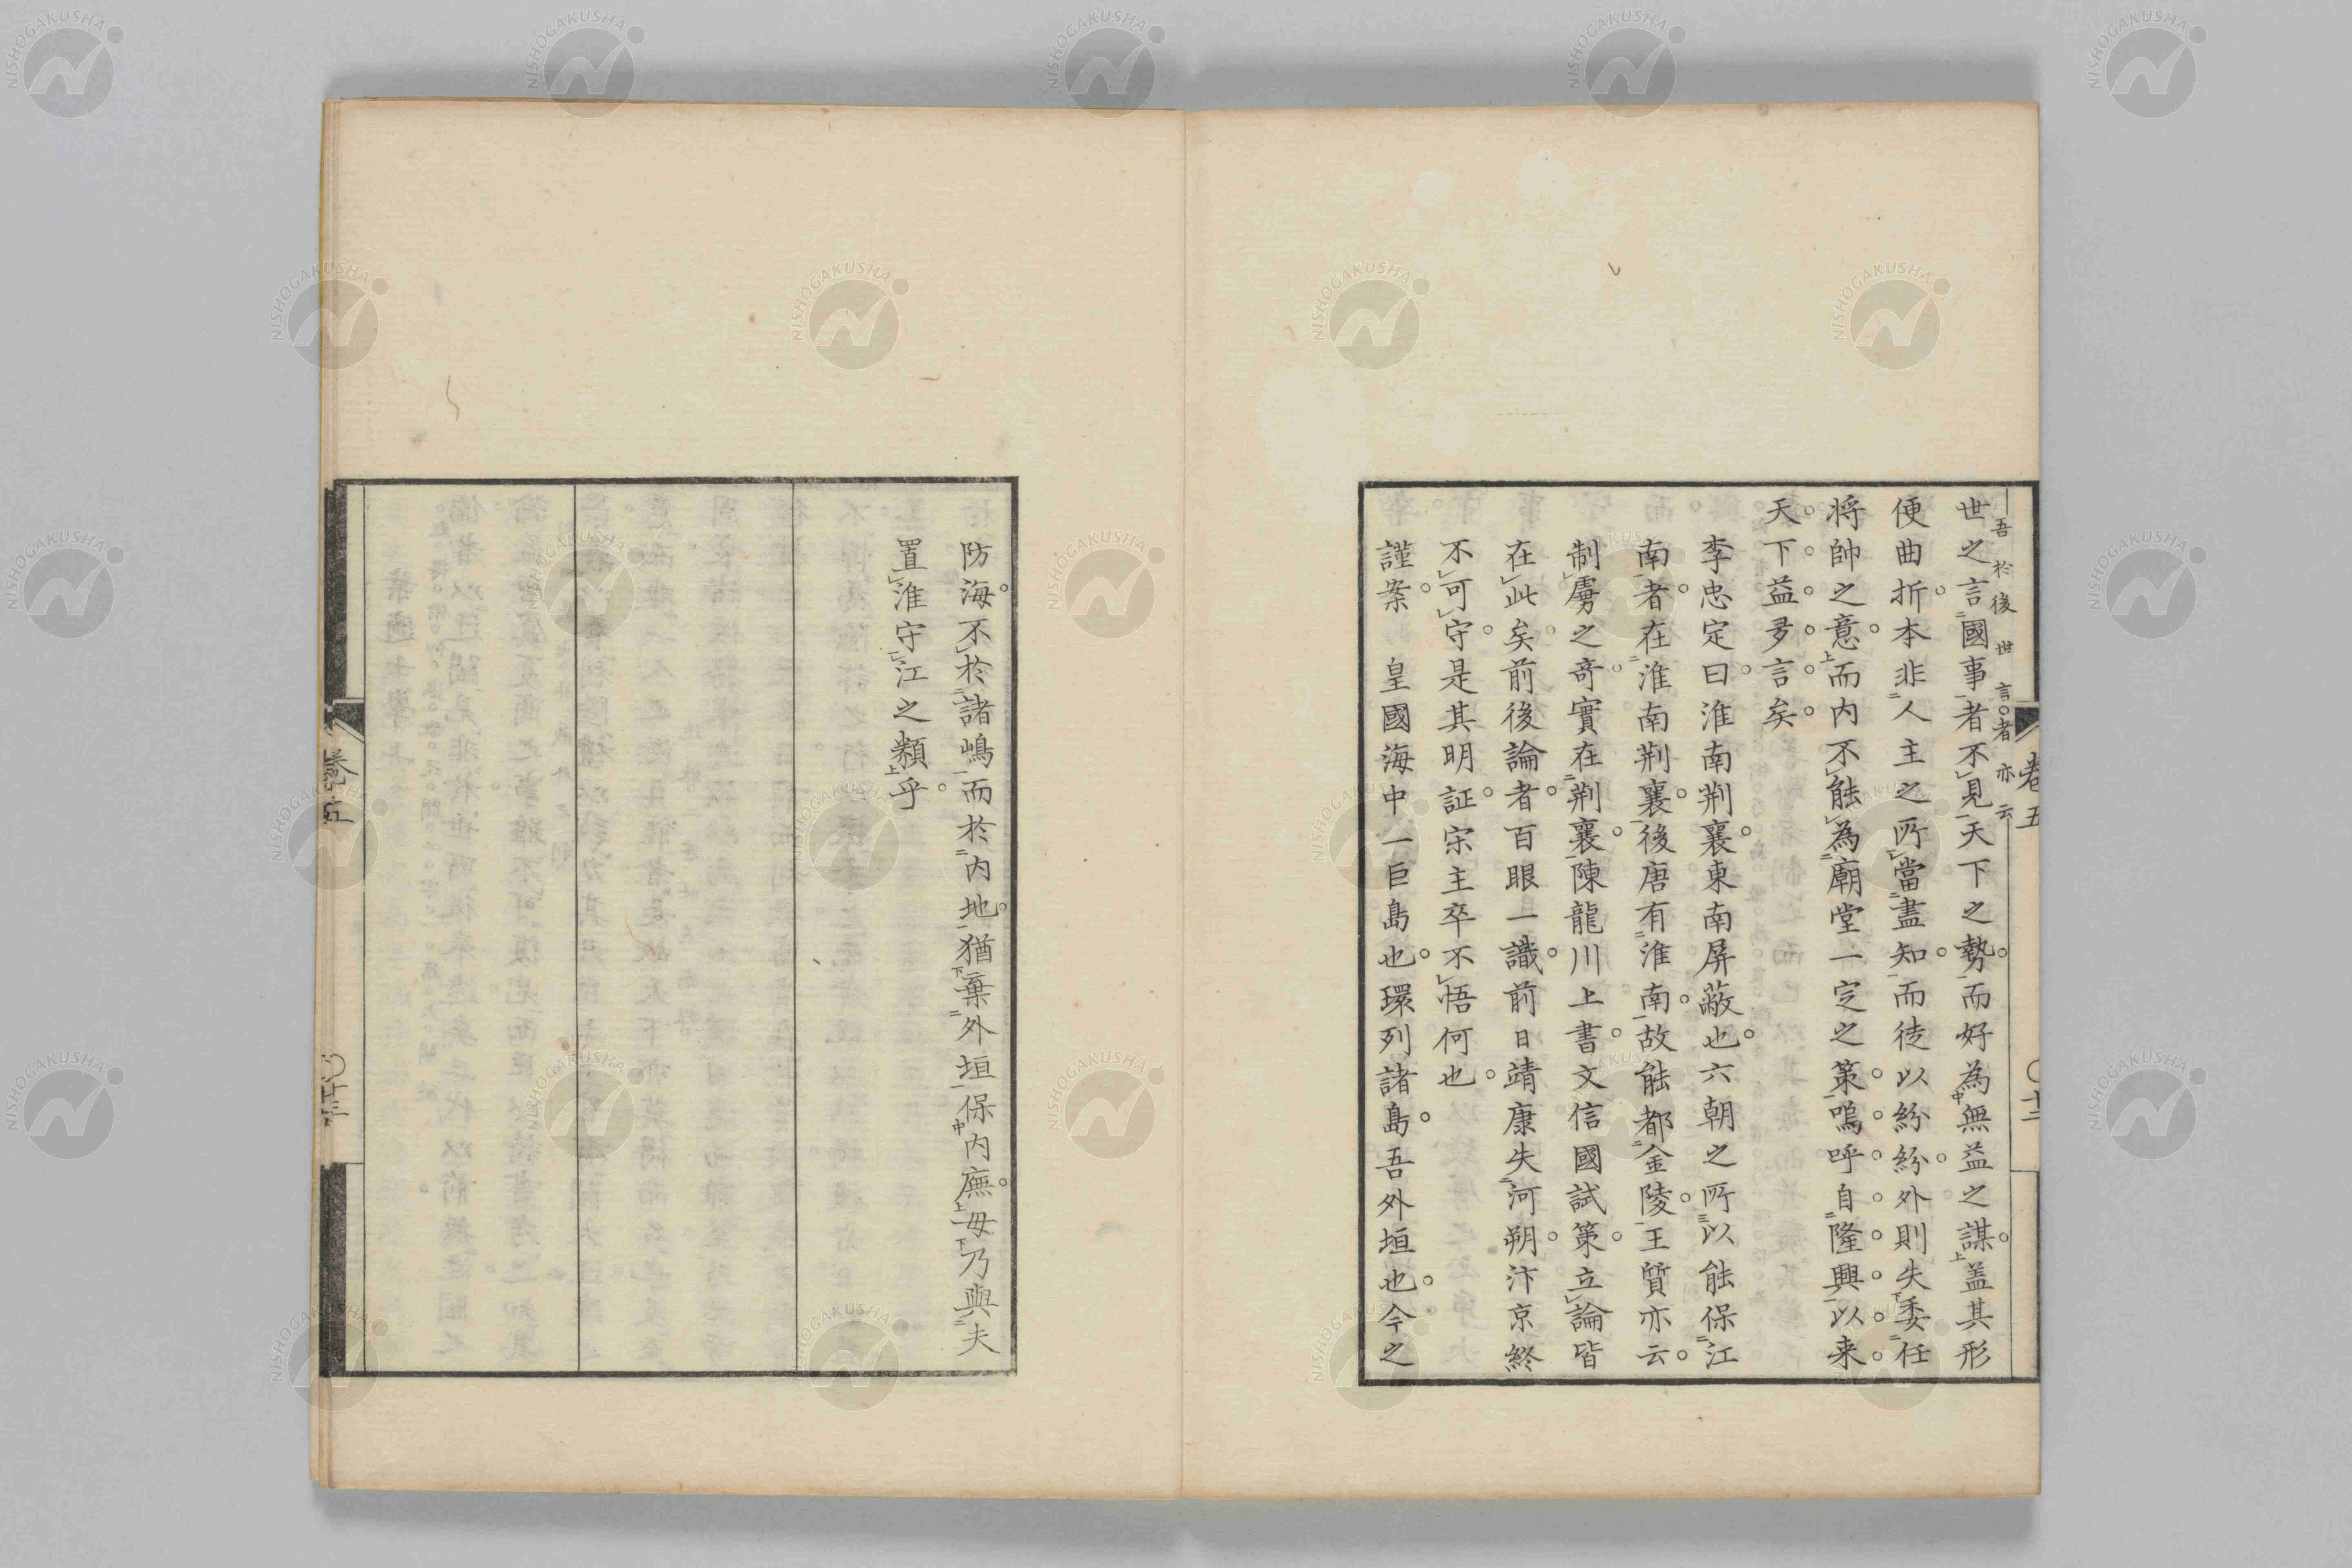 吾於後世言者亦云
世之言國事者不見天下之勢而好為無益之謀盖其形
便曲折本非人主之所當盡知而徒以紛紛外則失委任
将帥之意而内不能為廟堂一定之策嗚呼自隆興以来
天下益多言矣
李忠定曰淮南荆襄東南屏蔽也六朝之所以能保江
南者在淮南荆襄後唐有淮南故能都金陵王質亦云
制虜之奇實在荆襄陳龍川上書文信國試策立論皆
在此矣前後論者百眼一識前日靖康失河朔汴京終
不可守是其明証宋主卒不悟何也
謹案 皇國海中一巨島也環列諸島吾外垣也今之
卷五
〇十二
防海不於諸嶋而於内地猶棄外垣保内廡毋乃與夫
置淮守江之類乎
卷五
〇十三
NISHOGAKUSHA